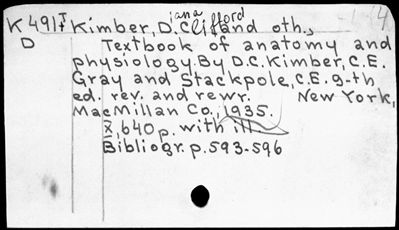 iana Clifford
K 491t Kimber, D. Cliffand oth.,
D Textbook of anatomy and
physiology. By D.C. Kimber, C.E.
Gray and Stackpole, C.E. 9-th
ed. rev. and rewr. New York,
MacMillan Co., 1935.
X, 640 p. with ill.
Bibliogr. p. 593-596